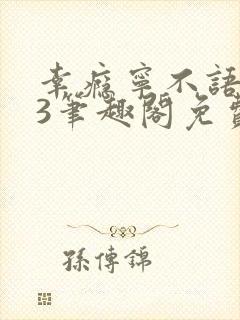 幸瘾寧不語
3筆趣閣免費
孫傳錦